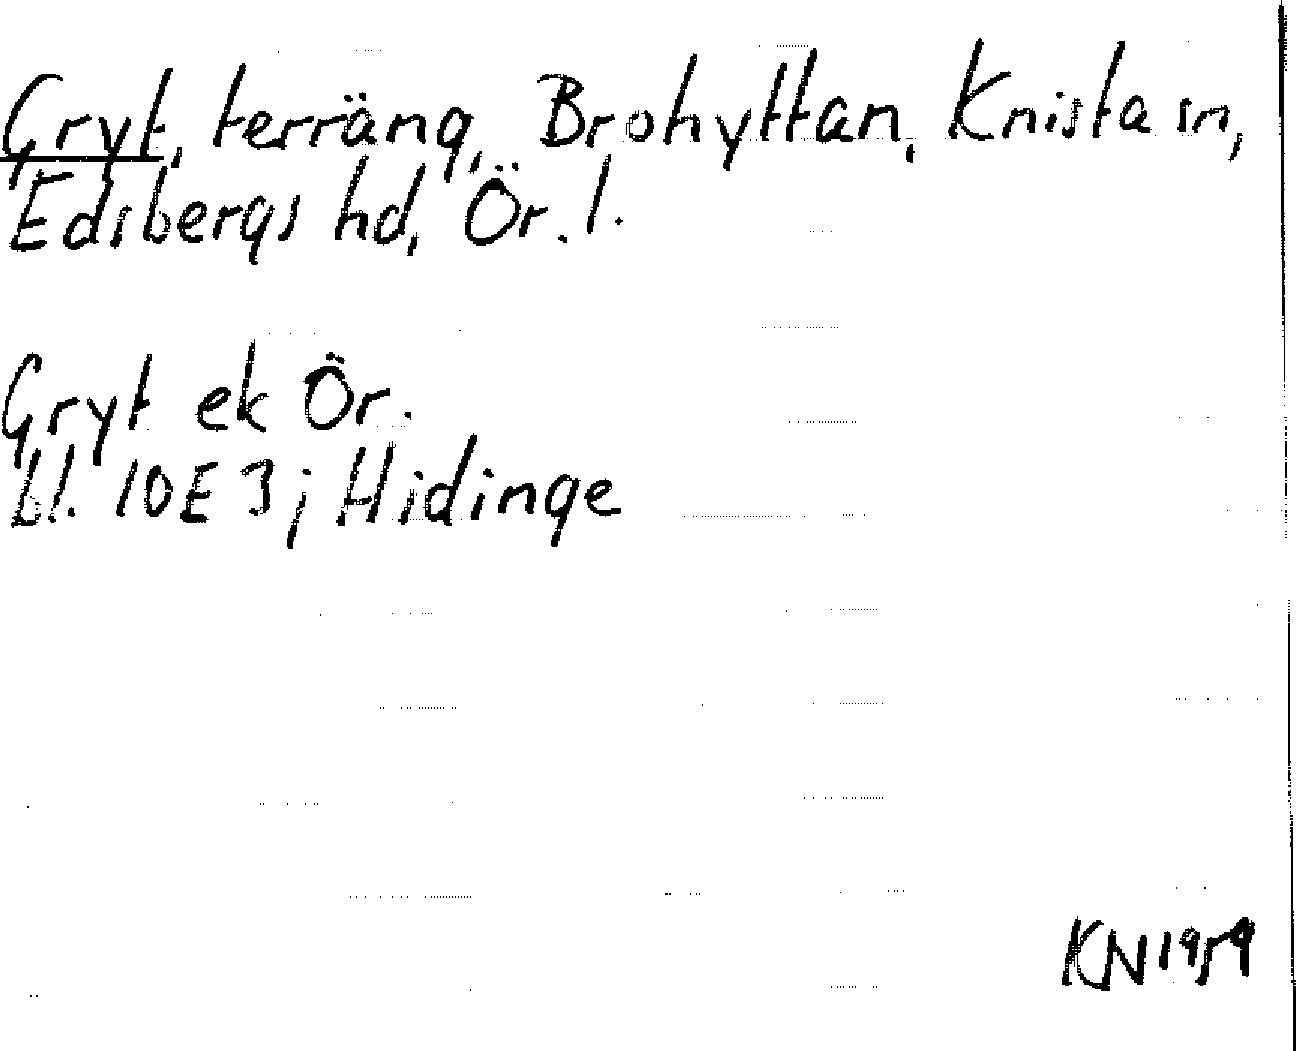 Gryt, terräng, Brohyttan, Knista sn,
Edsbergs hd, Ör. l.
Gryt ek Ör.
bl. 10E 3j Hidinge
KN 1959